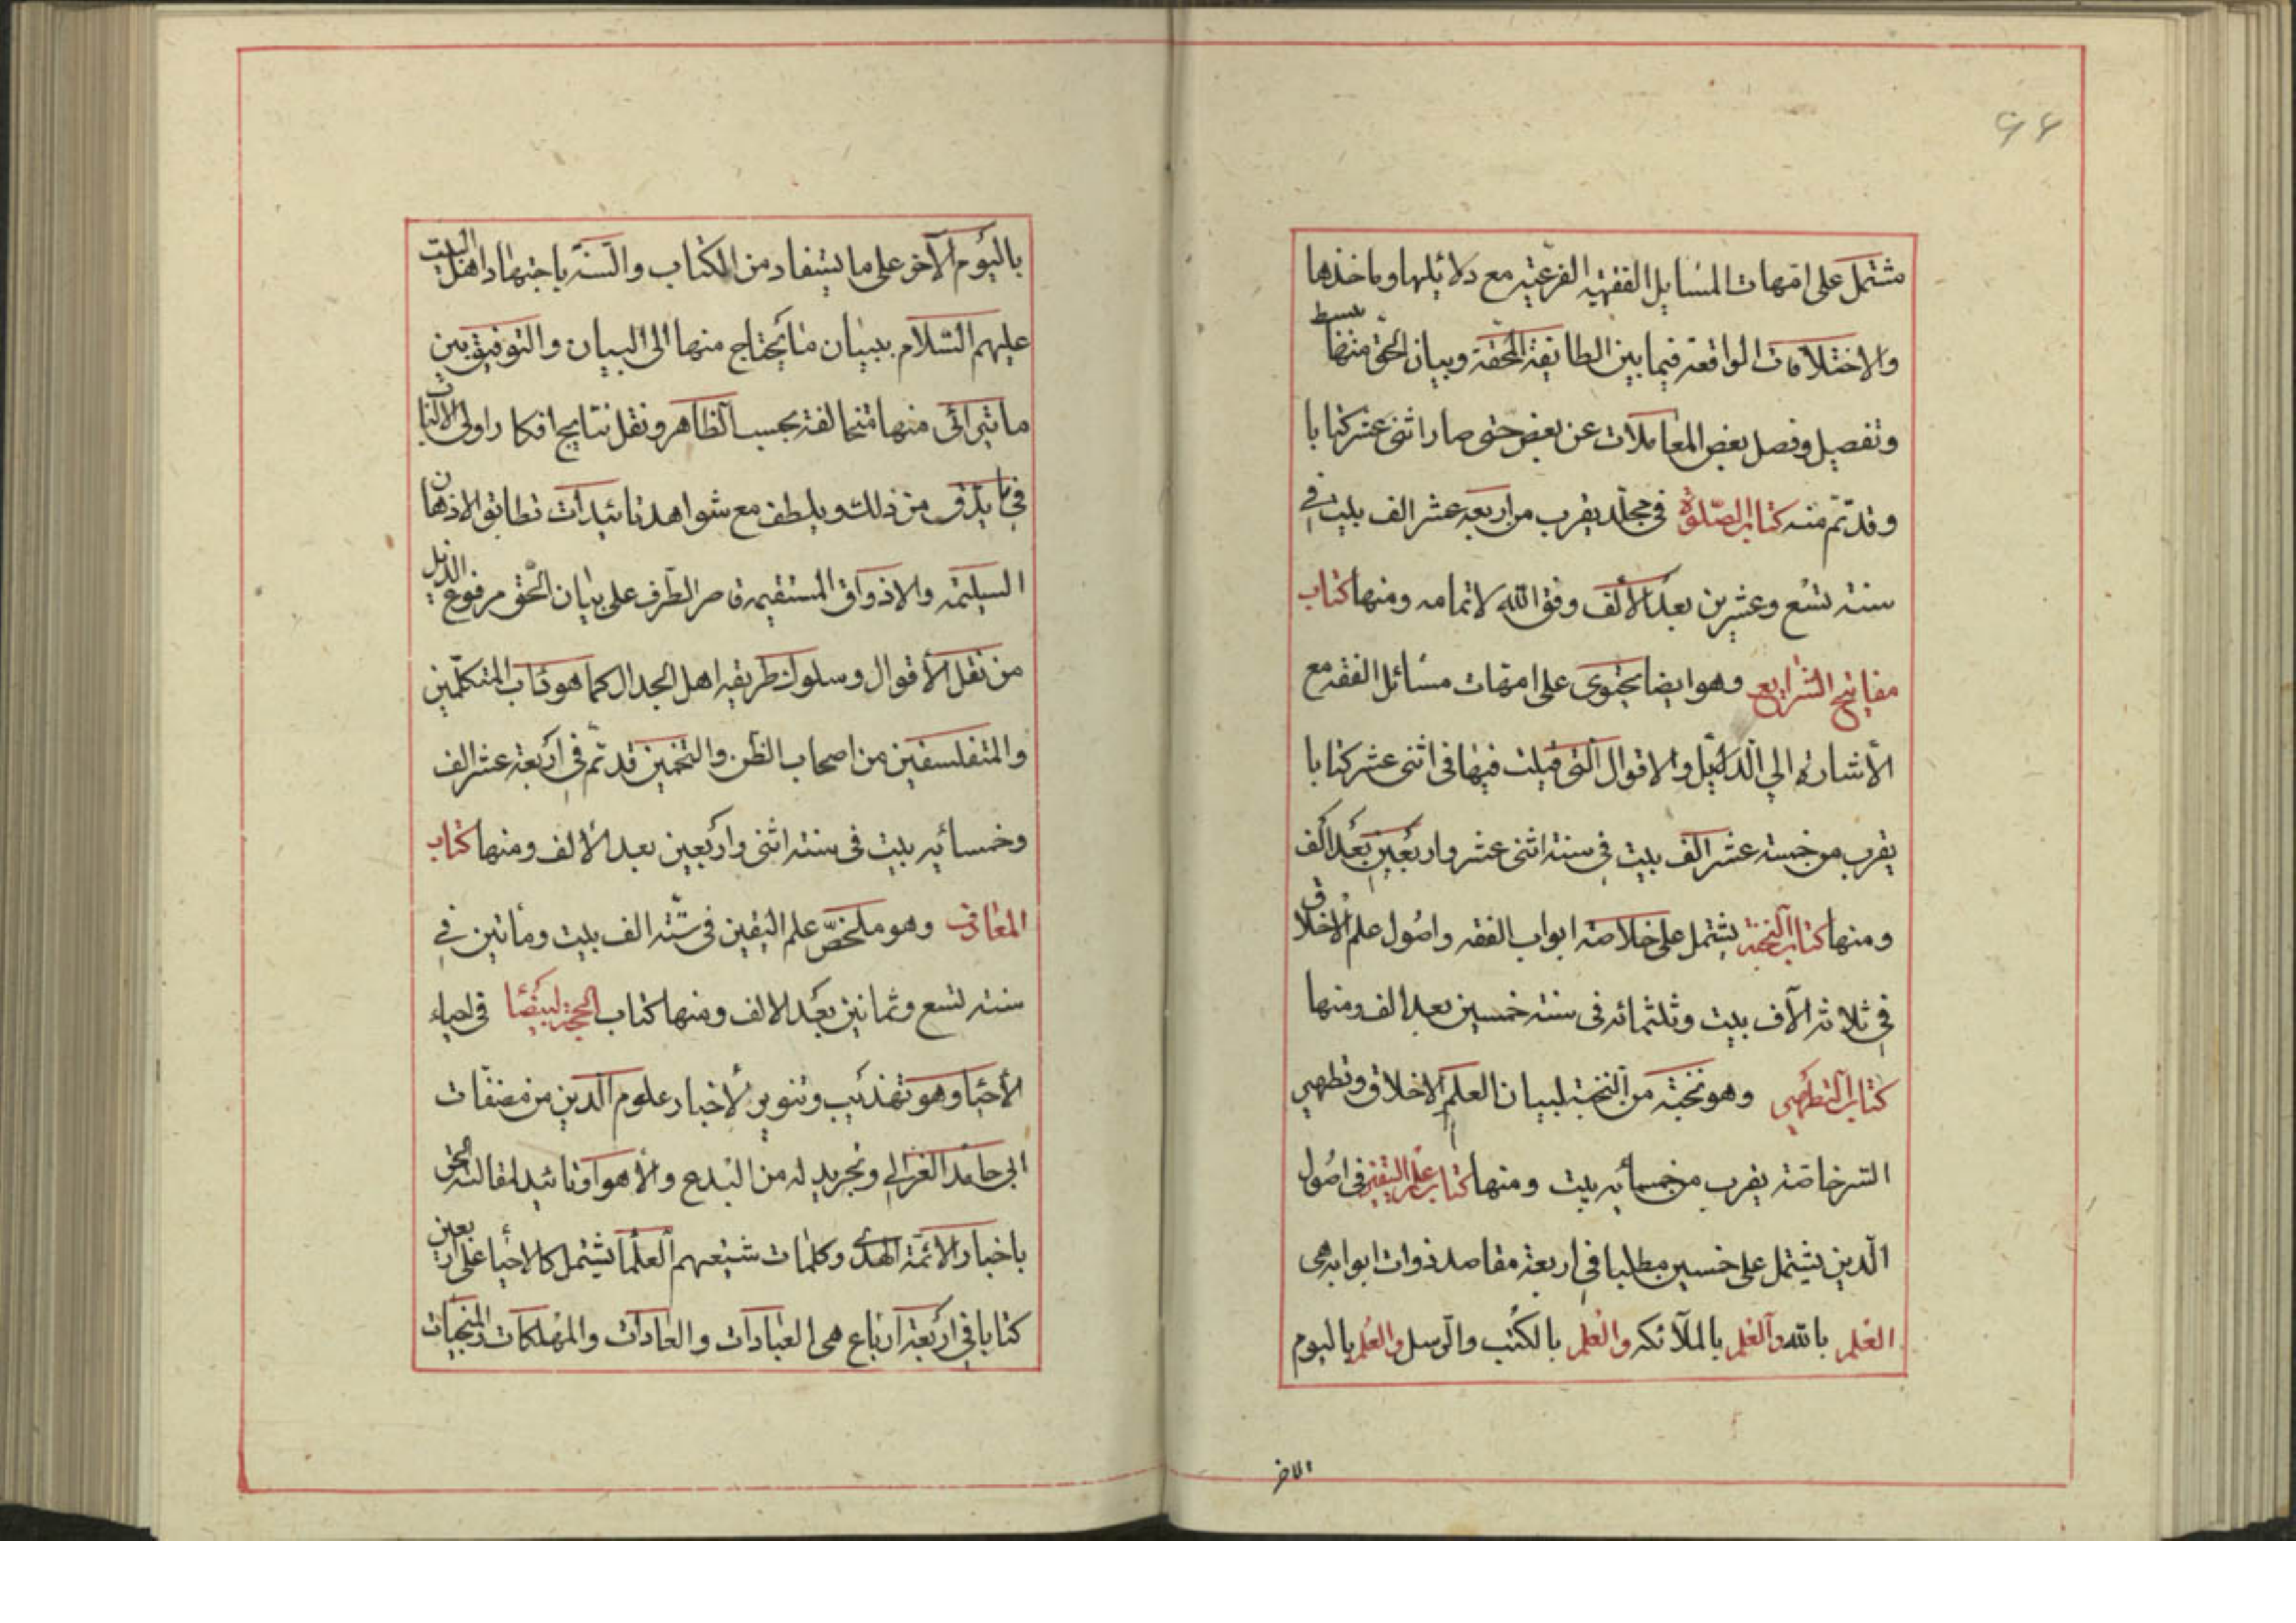 ۶۶
مشتمل على امهات المسايل الفقهيه الفرعيه مع دلايلها وماخذها
والاختلافات الواقعة فيما بين الطائفة المحقة وبيان الحق منها ببسط
وتفصيل وفصل بعض المعاملات عن بعض حتى صار اثنى عشر كتابا
وقد تم منه كتاب الصلوة فى مجلد يقرب من اربعة عشر الف بيت فى
سنة تسع وعشرين بعد الالف وفق الله لاتمامه ومنها كتاب
مفاتيح الشرايع وهو ايضا يحتوى على امهات مسائل الفقه مع
الأشارة الي الدلائل والاقوال التى قيلت فيها فى اثنى عشر كتابا
يقرب من خمسة عشر الف بيت فى سنة اثنى عشر واربعين بعد الف
ومنها كتاب النخبة يشتمل على خلاصة ابواب الفقه واصول علم الاخلاق
فى ثلاثة الآف بيت وثلثمائه فى سنة خمسين بعد الف ومنها
كتاب التطهير وهو نخبة من النخبة لبيان العلم الاخلاق وتطهير
السر خاصة يقرب من خمسمائه بيت ومنها كتاب علم اليقين فى اصول
الدين يشتمل على خمسين مطلبا فى اربعة مقاصد ذوات ابواب هى
العلم بالله والعلم بالملآئكه والعلم بالكتب والرسل والعلم باليوم
الاخر
باليوم الآخر على ما يستفاد من الكتاب والسنة باجتهاد اهل البيت
عليهم السلام ببيان ما يحتاج منها الى البيان والتوفيق بين
ما تترائى منها متخالفة بحسب الظاهر ونقل نتايج افكار اولى الالباب
فى ما يدق من ذلك ويلطف مع شواهد تائيدات تطابق الاذهان
السليمة والاذواق المستقيمة قاصر الطرف على بيان الحق مرفوع الذيل
من نقل الأقوال وسلوك طريقه اهل الجدال كما هو داب المتكلمين
والمتفلسفين من اصحاب الظن والتخمين قد تم فى اربعة عشر الف
وخمسمائه بيت فى سنة اثنى واربعين بعد الالف ومنها كتاب
المعارف وهو ملخص علم اليقين فى ستة الف بيت ومأتين فى
سنة تسع وثمانين بعد الالف ومنها كتاب المحجة البيضا فى احياء
الأحيا وهو تهذيب وتنوير لأخبار علوم الدين من مصنفات
ابى حامد الغزالى وتجريد له من البدع والأهوا وتائيد لمقالته الحق
باخبار الائمة الهدى وكلمات شيعتهم العلما يشتمل كالاحيا على اربعين
كتابا فى اربعة ارباع هى العبادات والعادات والمهلكات والمنجيات